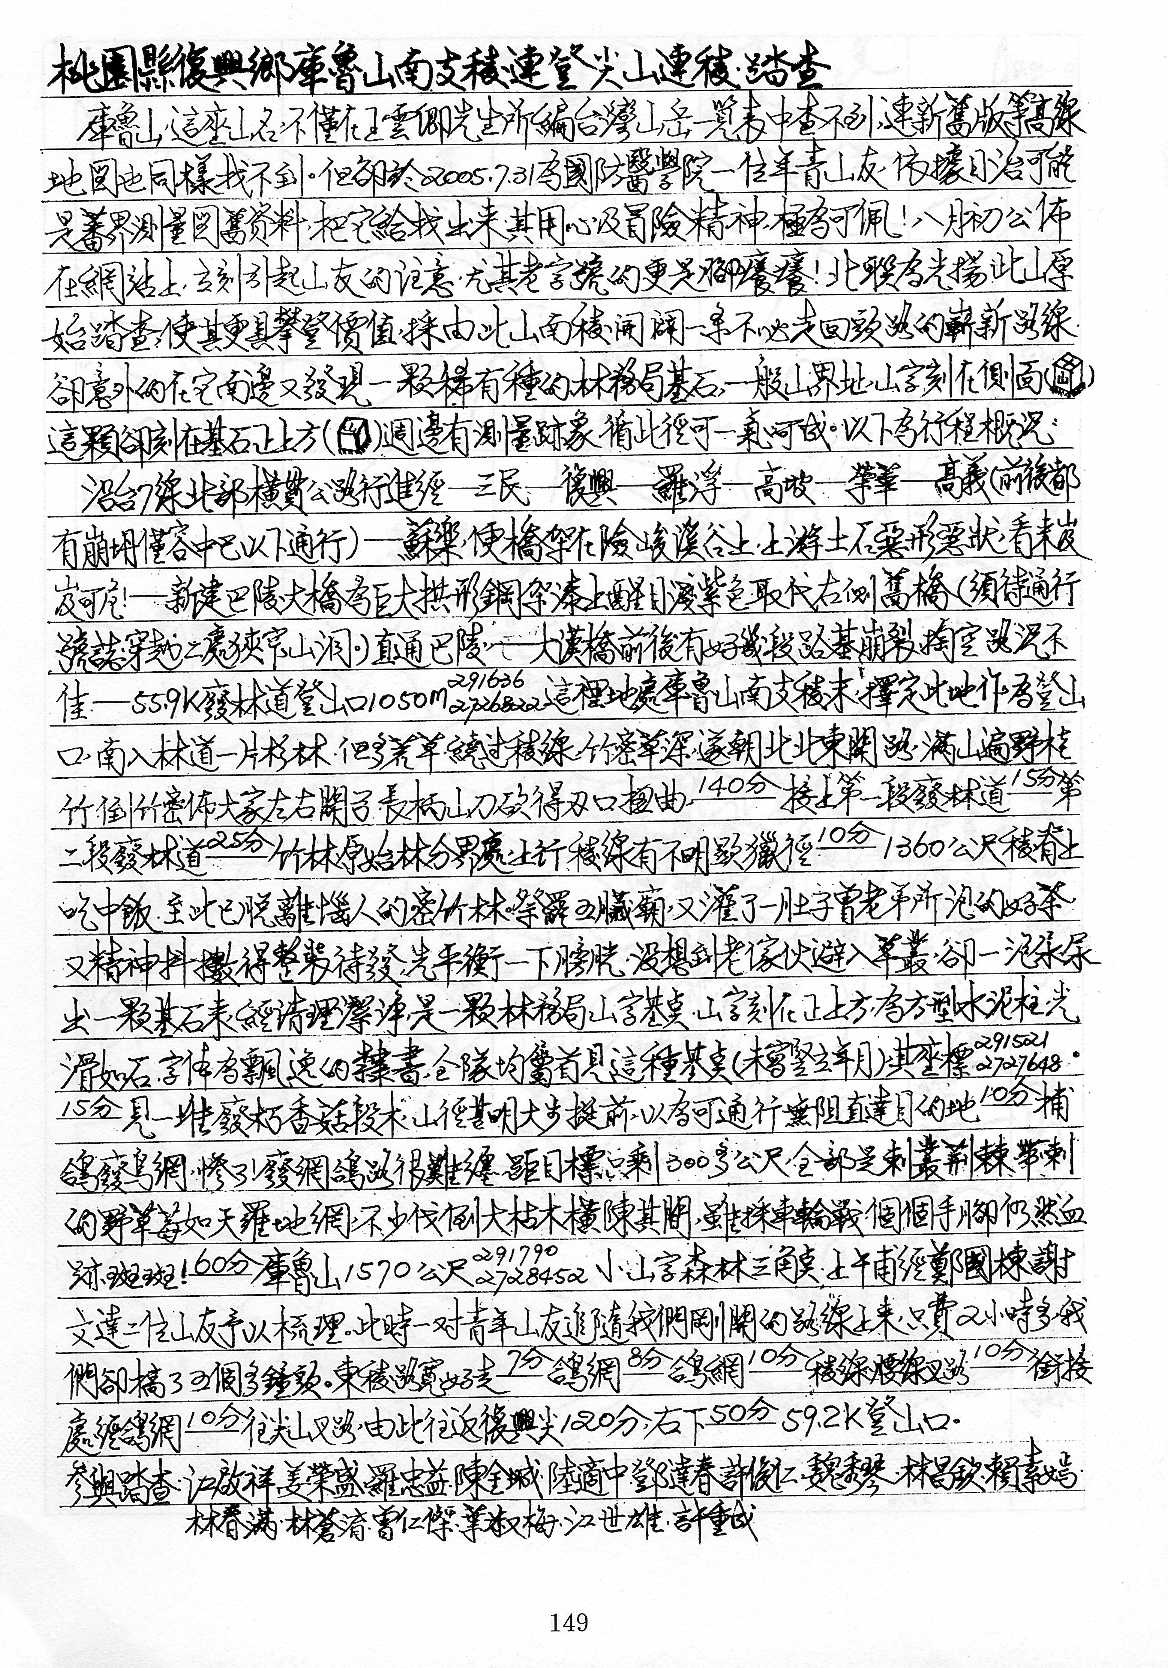 桃園縣復興鄉庫魯山南支稜連登尖山連稜踏查
庫魯山，這座山名不僅在王雲卿先生所編台灣山岳一覽表中查不到，連新舊版等高線
地圖也同樣找不到。但卻於2005.7.31為國防醫學院一位年青山友，依據日治可能
是蕃界測量圖舊資料，把它給找出來，其用心及冒險精神，極為可佩！八月初公佈
在網站上，立刻引起山友的注意，尤其老字號的更是腳癢癢！北聯為光揚此山原
始踏查，使其更具攀登價值，採由此山南稜，開闢一条不必走回頭路的嶄新路線，
卻意外的在它南邊又發現一顆稀有種的林務局基石，一般山界地，山字刻在側面(山)
這顆卻刻在基石正上方(山)週邊有測量跡象，循此徑可一氣呵成。以下為行程概況：
沿台7線北部橫貫公路行進經—三民—復興—羅浮—高坡—榮華—高義(前後都
有崩坍僅容中巴以下通行)—蘇樂，便橋架在險峻溪谷上，上游土石惡形惡狀，看來岌
岌可危！—新建巴陵大橋為巨大拱形鋼架漆上醒目深紫色取代右側舊橋(須待通行
號誌穿越二處狹窄山洞)直通巴陵—大漢橋前後有好幾段路基崩裂，掏空路況不
佳—55.9K廢林道登山口1050m 291636 2726822 這裡地處庫魯山南支稜末，擇定此地作為登山
口，南入林道一片杉林，但多芒草，繞過稜線，竹密草深，遂朝北北東開路，滿山遍野桂
竹，倒竹密佈，大家左右開弓，長柄山刀砍得刃口扭曲，140分接上第一段廢林道15分第
二段廢林道25分竹林原始林分界處，上行稜線有不明顯獵徑10分1360公尺稜脊上
吃中飯，至此已脫離惱人的密竹林，祭罷五臟廟，又灌了一肚子曾老弟所泡的好茶，
又精神抖擻得整裝待發，先平衡一下膀胱，沒想到老傢伙避入草叢，卻一泡尿尿
出一顆基石來，經清理潔淨，是一顆林務局山字基点，山字刻在正上方，為方型水泥柱，光
滑如石，字体為飄逸的隸書，全隊均屬首見這種基点(未書豎立年月)，其座標 291521 2727648。
15分見一堆廢朽香菇段木，山徑甚明大步挺前，以為可通行無阻直達目的地10分捕
鴿廢鳥網，慘了！廢網鴿路很難纏，距目標只剩300多公尺全部是刺叢荊棘，帶刺
的野草莓如天羅地網，不少伐倒大枯木橫陳其間，雖採車輪戰，個個手腳仍然血
跡斑斑！60分庫魯山1570公尺 291790 2728452 小山字森林三角点，上午甫經鄭國棟謝
文達二位山友予以梳理。此時一对青年山友追隨我們剛開的路線上來，只費2小時多，我
們卻搞了五個多鐘頭。東稜路寬好走7分鴿網8分鴿網10分稜線腰線叉路10分銜接
處經鴿網10分往尖山叉路，由此往返復興尖120分，右下50分59.2K登山口。
參與踏查：江啟祥，姜榮盛，羅忠益，陳全城，陸適中，鄧達春，許俊仁，魏秀琴，林昌欽，賴素嫣
林春滿，林蒼濱，曾仁傑，葉淑梅，江世雄，許重成
149